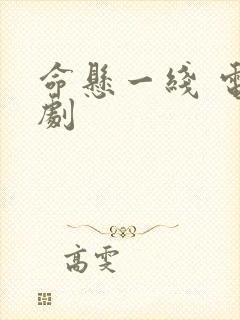 命懸一綫 電
劇
高雯